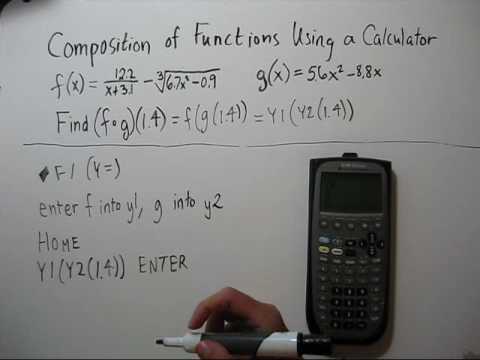 Composition of Functions Using a Calculator
f(x) = 12.2 / x+3.1 − ∛6.7x²−0.9 g(x) = 5.6x²−8.8x
Find (f∘g)(1.4) = f(g(1.4)) = Y1(Y2(1.4))
◆F1 (Y=)
enter f into y1, g into y2
HOME
Y1(Y2(1.4)) ENTER